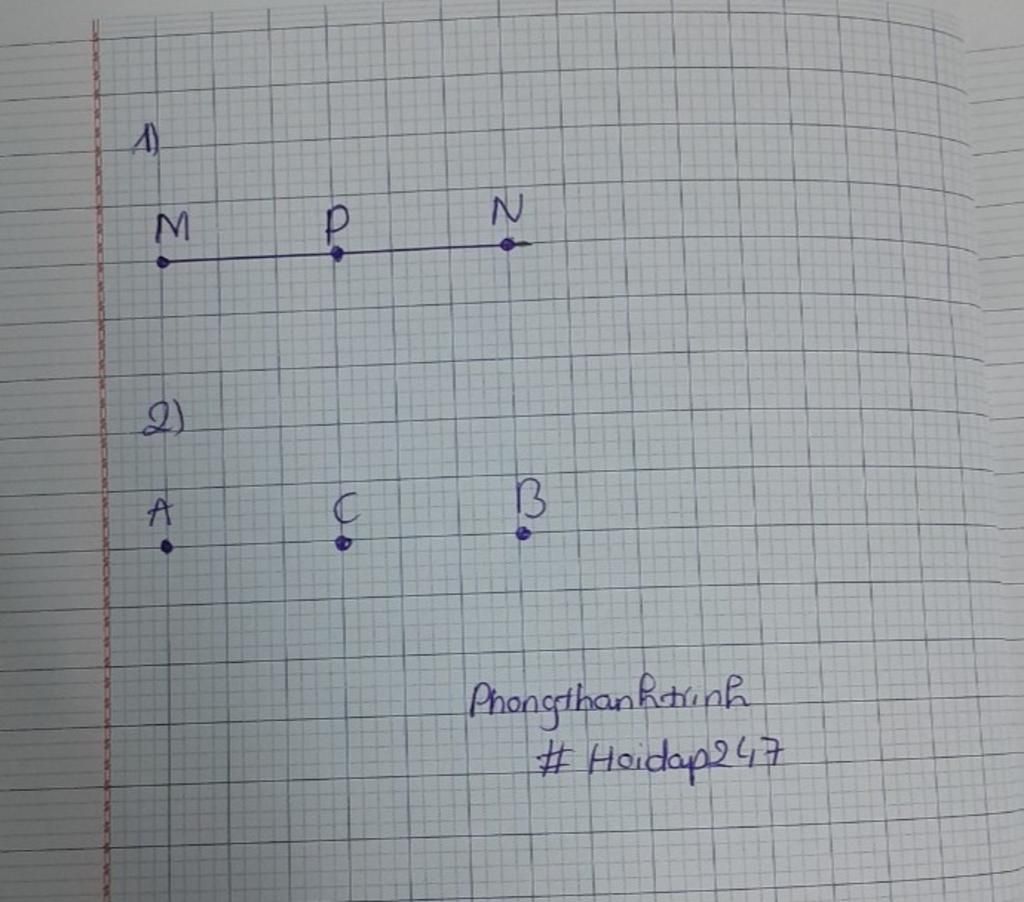 1)
M P N
2)
A C B
Phongthanhtrinh
# Hoidap247